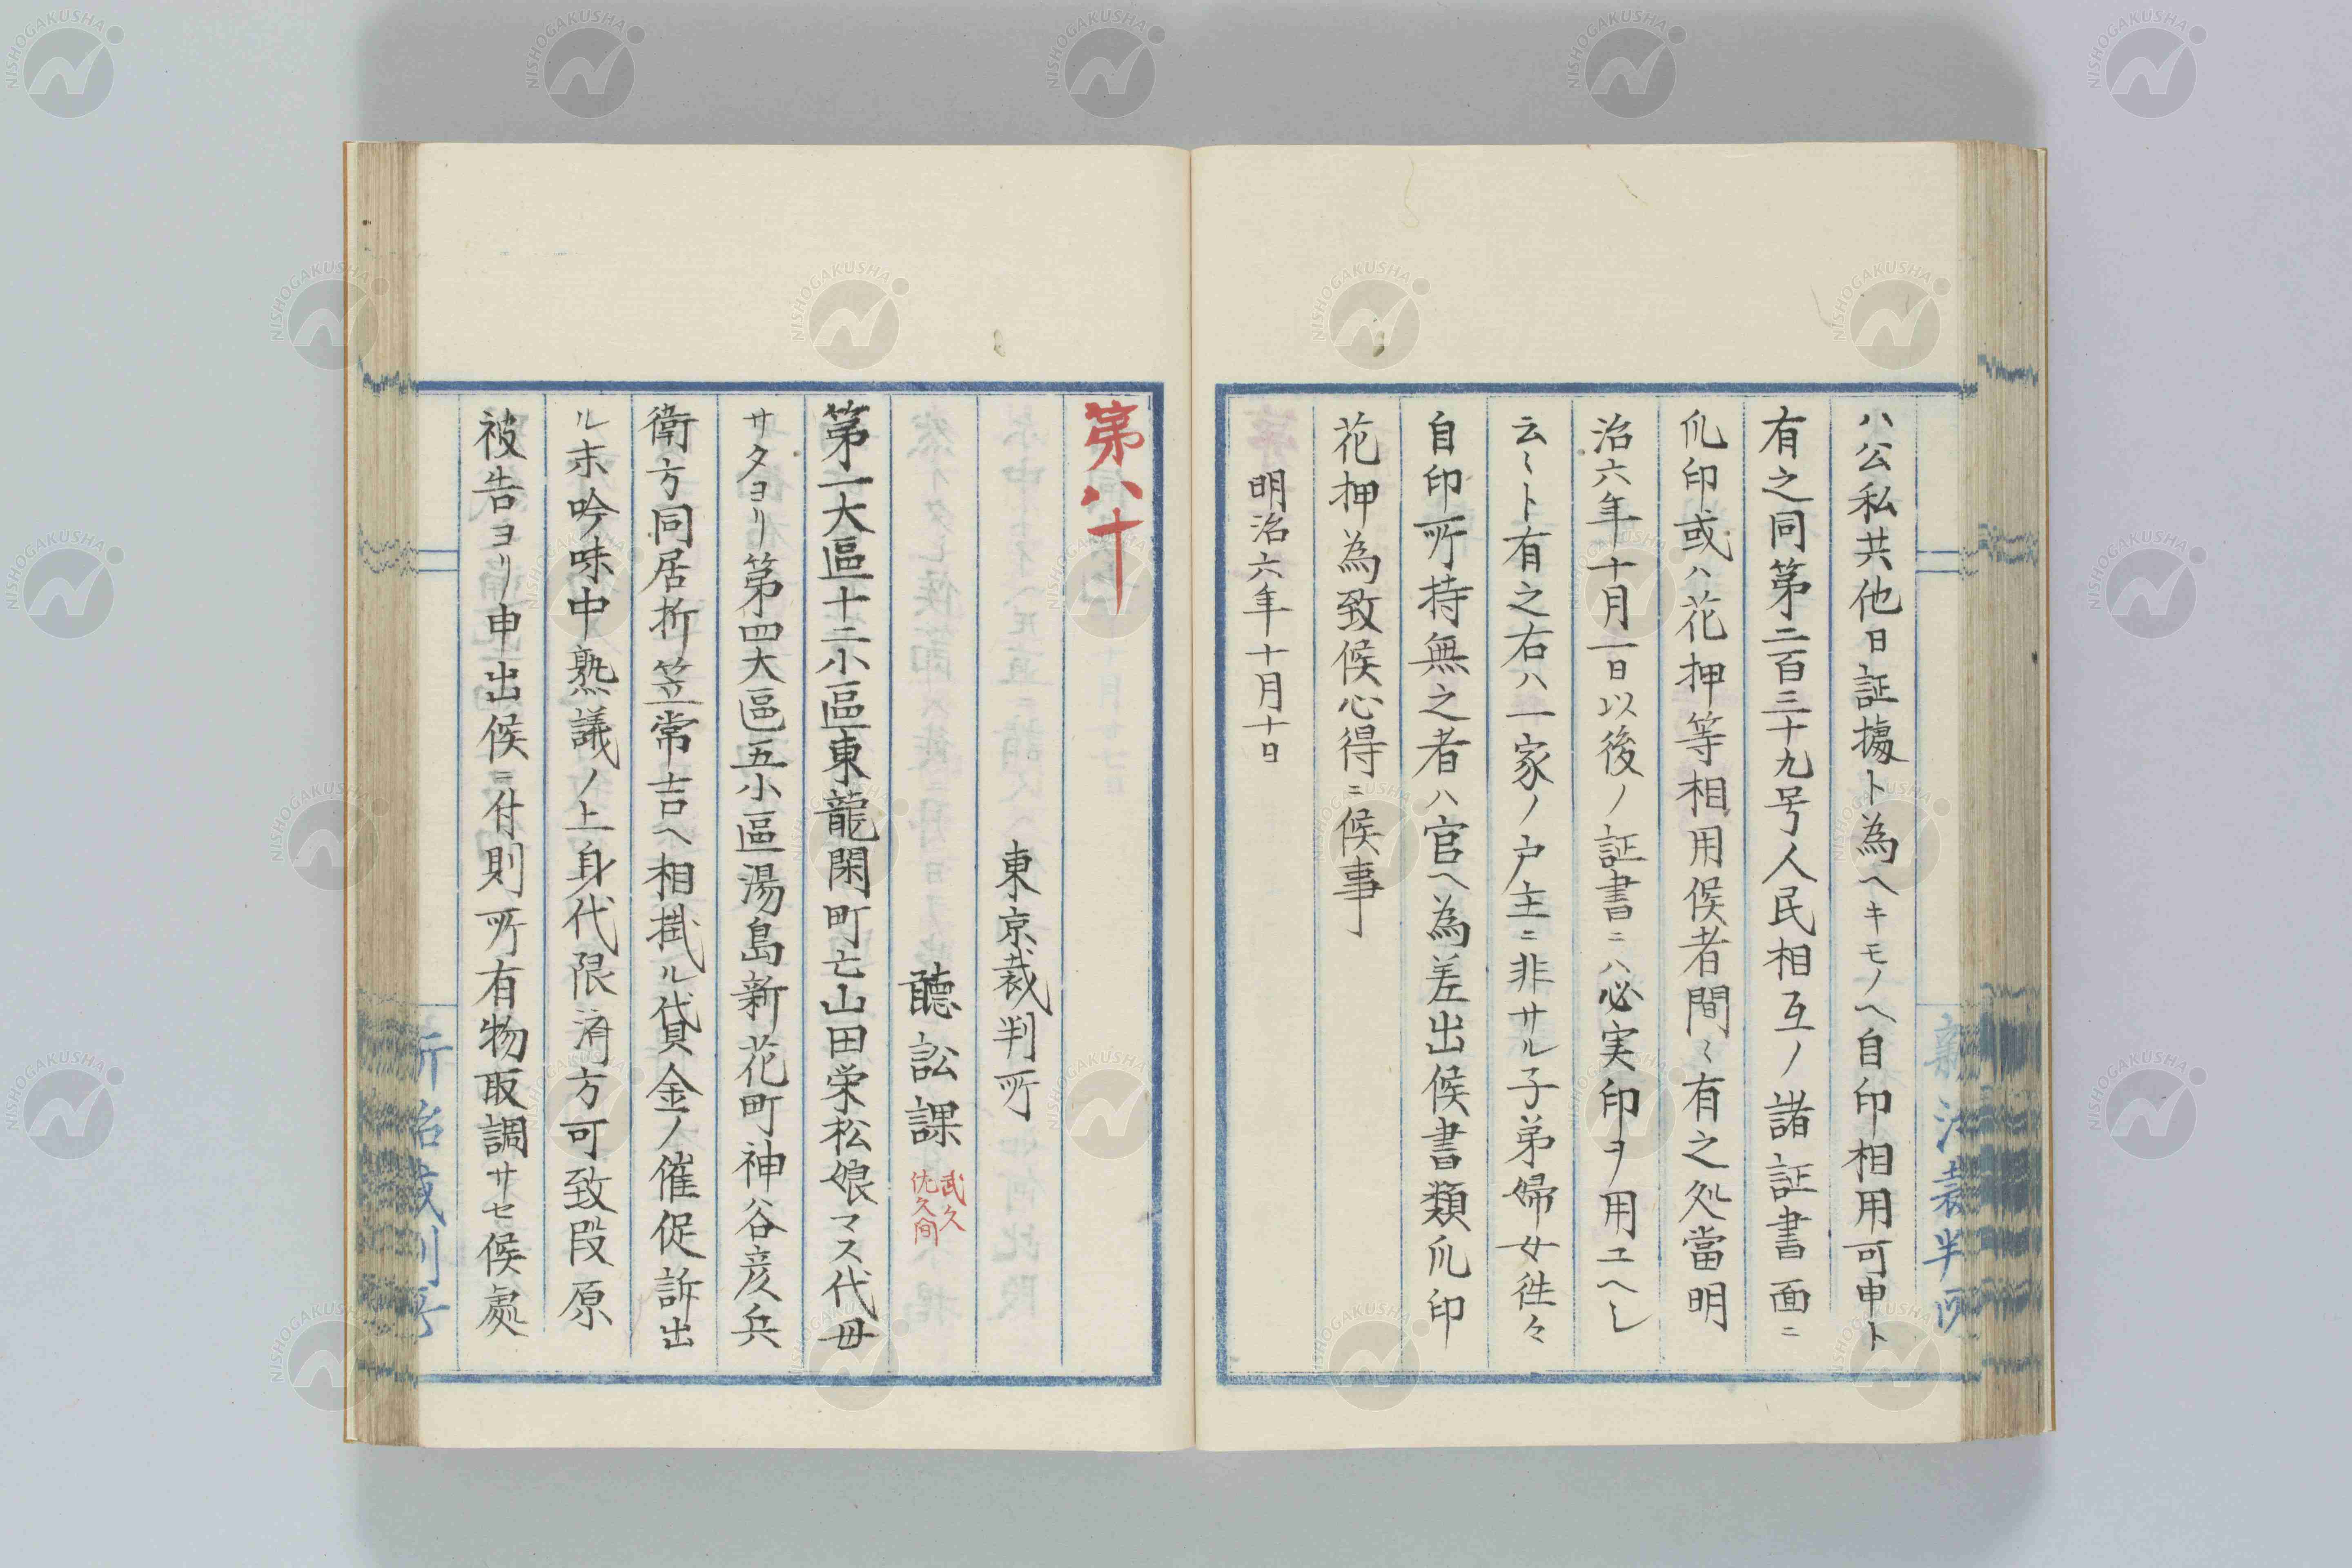 ハ公私共他日証據ト為ヘキモノヘ自印相用可申ト
有之同第二百三十九号人民相互ノ諸証書面ニ
爪印或ハ花押等相用候者間〻有之処當明
治六年十月一日以後ノ証書ニハ必実印ヲ用ユヘし
云〻ト有之右ハ一家ノ戸主ニ非サル子弟婦女徃々
自印所持無之者ハ官ヘ為差出候書類爪印
花押為致候心得ニ候事
明治六年十月十日
第八十
東京裁判所
聴訟課
武久
佐久間
第一大區十二小區東龍閑町亡山田栄松娘マス代毋
サタヨリ第四大區五小區湯島新花町神谷彦兵
衛方同居折笠常吉ヘ相掛ル貸金ノ催促訴出
ル末吟味中熟議ノ上身代限済方可致段原
被告ヨリ申出候ニ付則所有物取調サセ候處
NISHOGAKUSHA